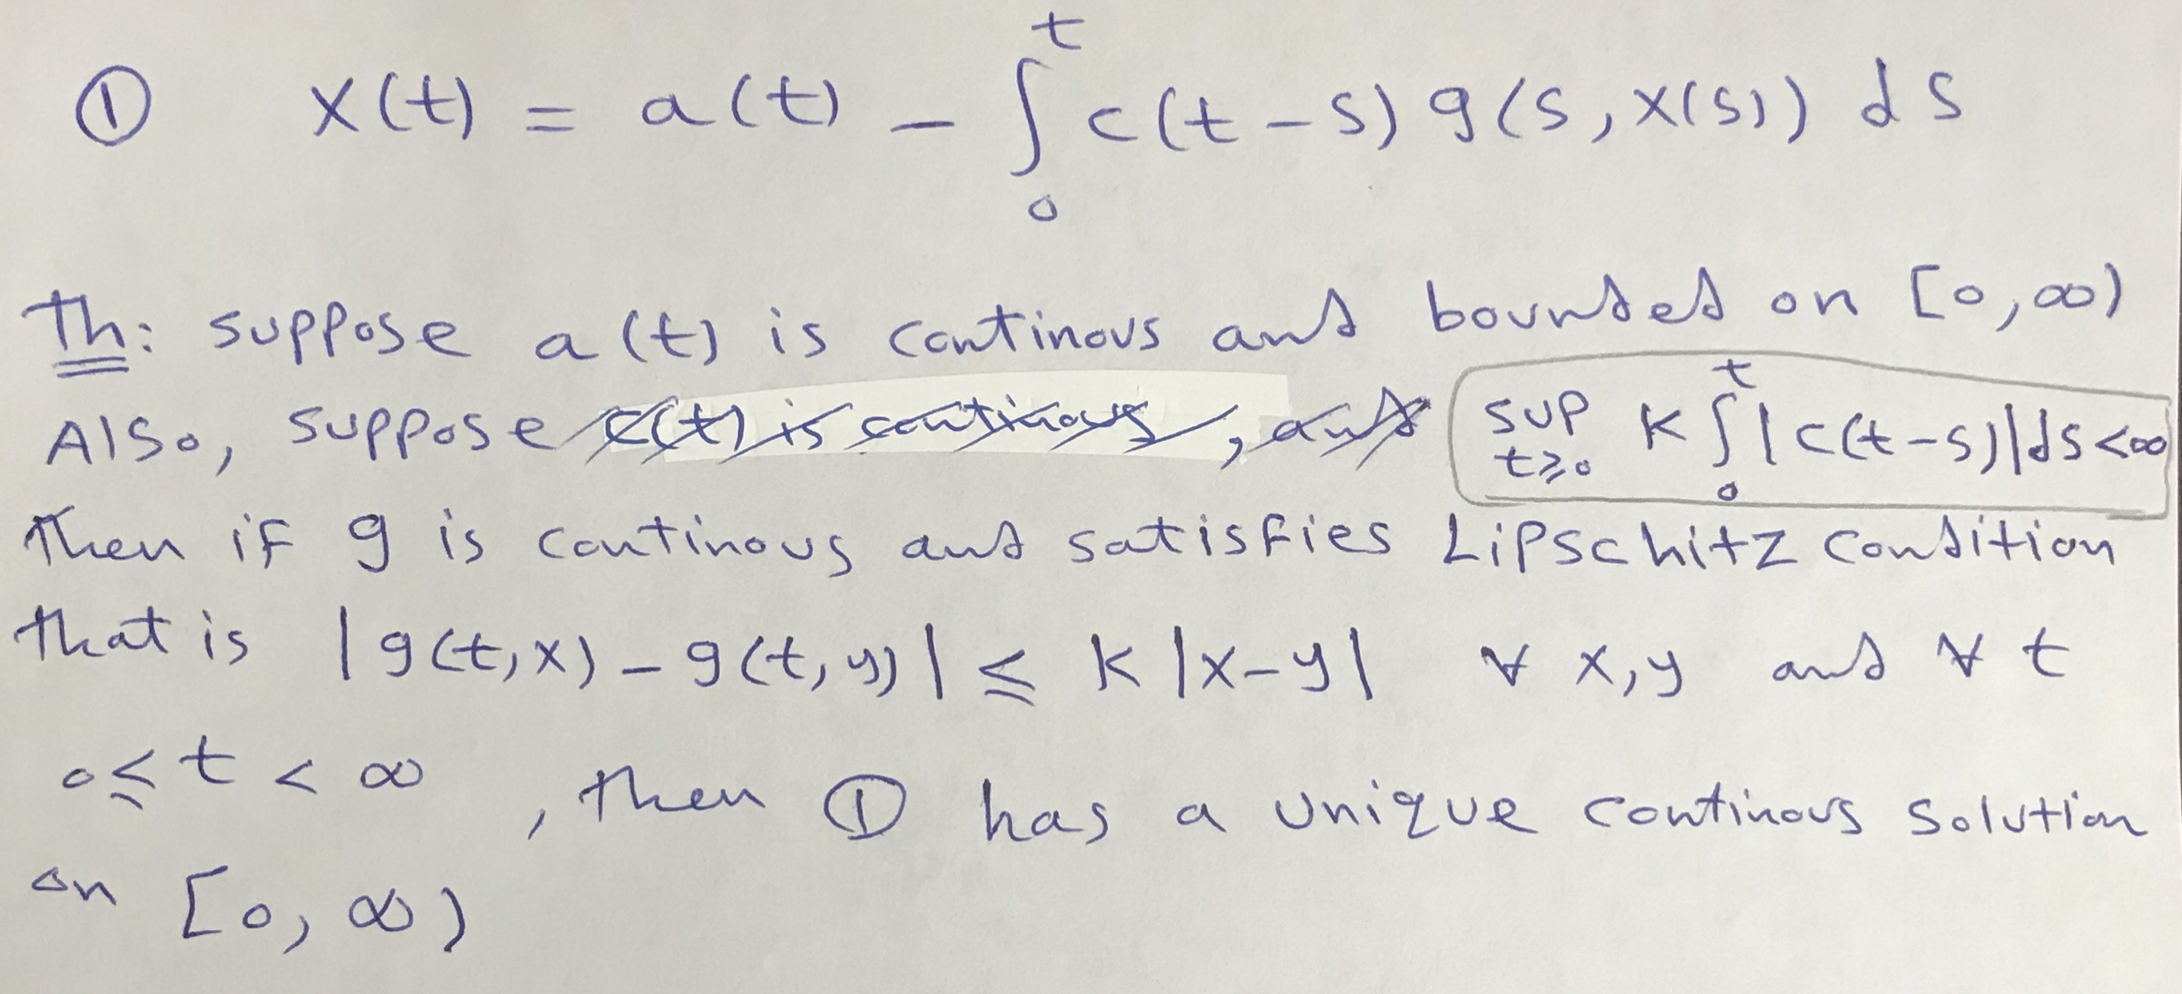 ① x(t) = a(t) - ∫₀ᵗ c(t-s) g(s, x(s)) ds
Th: suppose a(t) is continous and bounded on [0,∞)
Also, suppose ~~c(t) is continous, and~~ sup_{t≥0} K ∫₀ᵗ |c(t-s)|ds<∞
Then if g is continous and satisfies Lipschitz condition
that is |g(t,x) - g(t,y)| ≤ K |x-y| ∀ x,y and ∀ t
0≤t<∞, then ① has a unique continous solution
on [0, ∞)